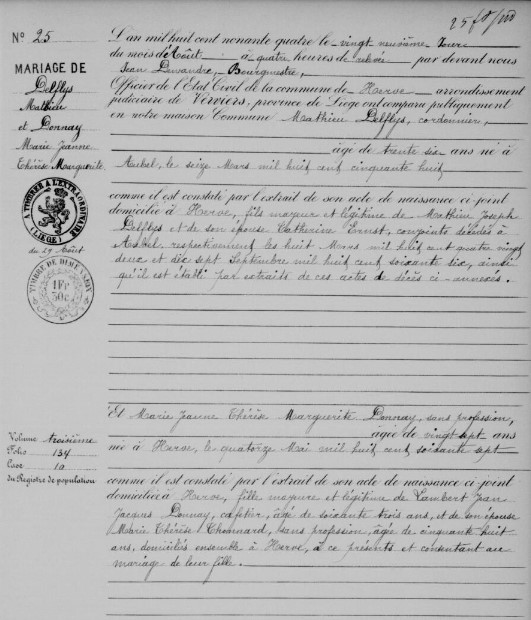 25 fo
No 25
L'an mil huit cent nonante quatre le vingt neuvième jour
du mois d'Août à quatre heures de relevée par devant nous
Jean Dewandre, Bourgmestre,
Officier de l'État Civil de la commune de Herve arrondissement
judiciaire de Verviers, province de Liége ont comparu publiquement
en notre maison Commune Mathieu Delflys, cordonnier,
âgé de trente six ans né à
Aubel, le seize Mars mil huit cent cinquante huit
MARIAGE DE
Delflys
Mathieu
et Donnay
Marie Jeanne
Thérèse Marguerite
A TIMBRER A L'EXTRAORDINAIRE
(LIÉGE)
du 29 Août
TIMBRE DE DIMENSION
1 Fr
50c
comme il est constaté par l'extrait de son acte de naissance ci-joint
domicilié à Herve, fils majeur et légitime de Mathieu Joseph
Delflys et de son épouse Catherine Ernst, conjoints décédés à
Aubel respectivement les huit Mars mil huit cent quatre vingt
deux et dix sept Septembre mil huit cent soixante six, ainsi
qu'il est établi par extraits de ces actes de décès ci-annexés.
Et Marie Jeanne Thérèse Marguerite Donnay, sans profession,
âgée de vingt sept ans
née à Herve, le quatorze Mai mil huit cent soixante sept
Volume troisième
Folio 134
Case 10
du Registre de population
comme il est constaté par l'extrait de son acte de naissance ci-joint
domiciliée à Herve, fille majeure et légitime de Lambert Jean
Jacques Donnay, âgé de soixante trois ans, et de son épouse
Marie Thérèse Thonnard, sans profession, âgée de cinquante huit
ans, domiciliés ensemble à Herve, à ce présents et consentant au
mariage de leur fille.